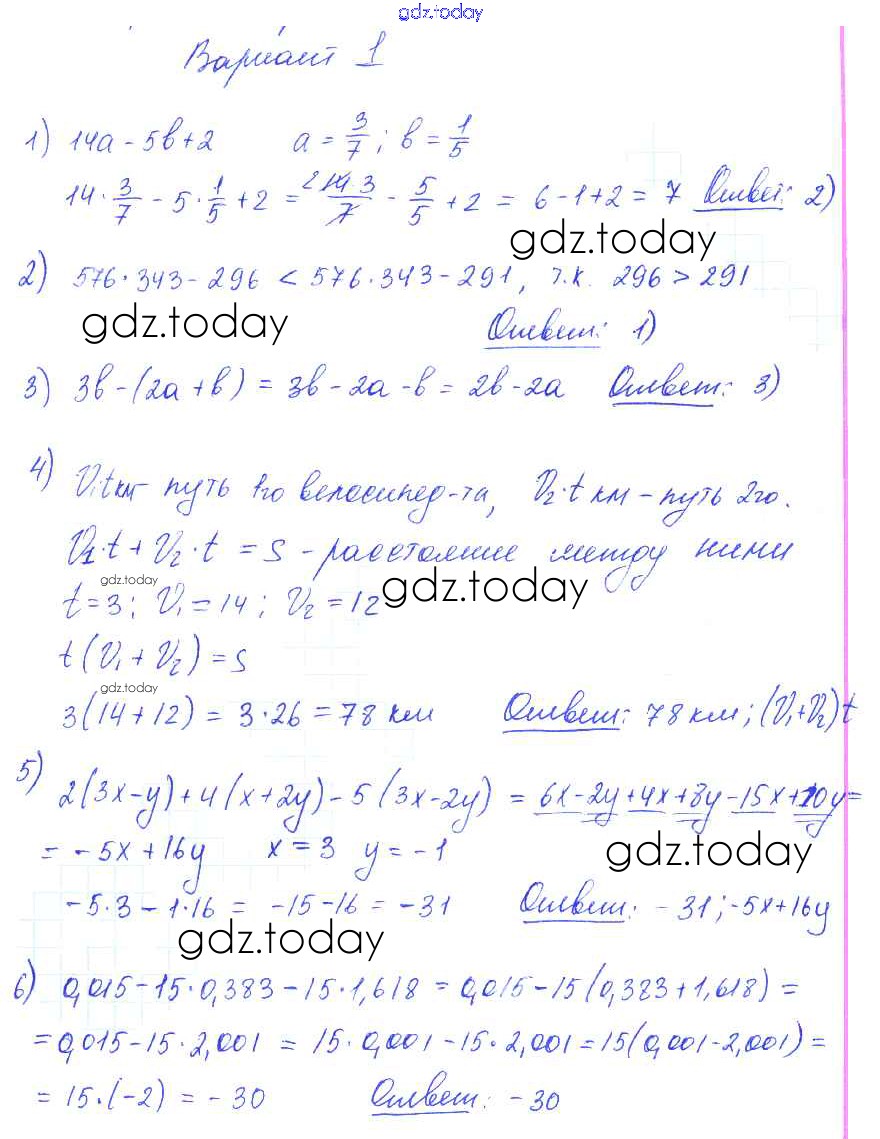 gdz.today
Вариант 1
1) 14a - 5b + 2 a = 3/7; b = 1/5
14 · 3/7 - 5 · 1/5 + 2 = 14·3/7 2 - 5/5 + 2 = 6 - 1 + 2 = 7 Ответ: 2)
gdz.today
2) 576 · 343 - 296 < 576 · 343 - 291, т.к. 296 > 291
gdz.today Ответ: 1)
3) 3b - (2a + b) = 3b - 2a - b = 2b - 2a Ответ: 3)
4) V₁t км - путь 1го велосипед-та, V₂·t км - путь 2го.
V₁·t + V₂·t = S - расстояние между ними
gdz.today
t = 3; V₁ = 14; V₂ = 12 gdz.today
t(V₁ + V₂) = S
gdz.today
3(14 + 12) = 3 · 26 = 78 км Ответ: 78 км; (V₁+V₂)t
5) 2(3x - y) + 4(x + 2y) - 5(3x - 2y) = 6x - 2y + 4x + 8y - 15x + 10y =
= - 5x + 16y x = 3 y = -1 gdz.today
-5·3 - 1·16 = -15 - 16 = -31 Ответ: - 31; -5x + 16y
gdz.today
6) 0,015 - 15·0,383 - 15·1,618 = 0,015 - 15(0,383 + 1,618) =
= 0,015 - 15·2,001 = 15·0,001 - 15·2,001 = 15(0,001 - 2,001) =
= 15·(-2) = - 30 Ответ: - 30